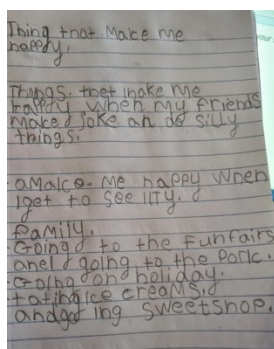 Thing that make me
happy,
Things. thet make me
happy when my friends
make a joke an do silly
things.
amake. me happy when
I get to see lity.
family.
Going to the funfairs
and going to the Park.
Going on holiday.
tating ice creams,
and go ing sweetshop.